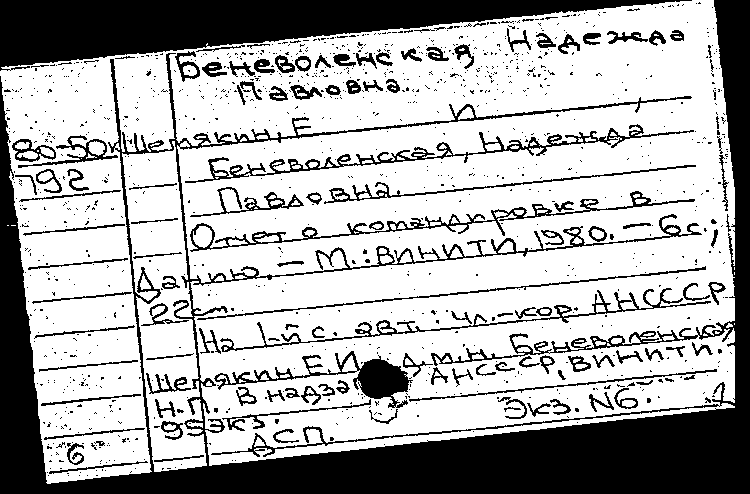 Беневоленская Надежда
Павловна.
80-50к Шемякин, Е И ,
792 Беневоленская, Надежда
Павловна.
Отчет о командировке в
Данию. — М.: ВИНИТИ, 1980. — 6 с.;
22 см.
На 1-й с. авт.: чл.-кор. АНСССР
Шемякин Е.И., д.м.н. Беневоленская
Н.П. В надза АНСССР, ВИНИТИ.
95 экз. Экз. N6. 1
6 ДСП.